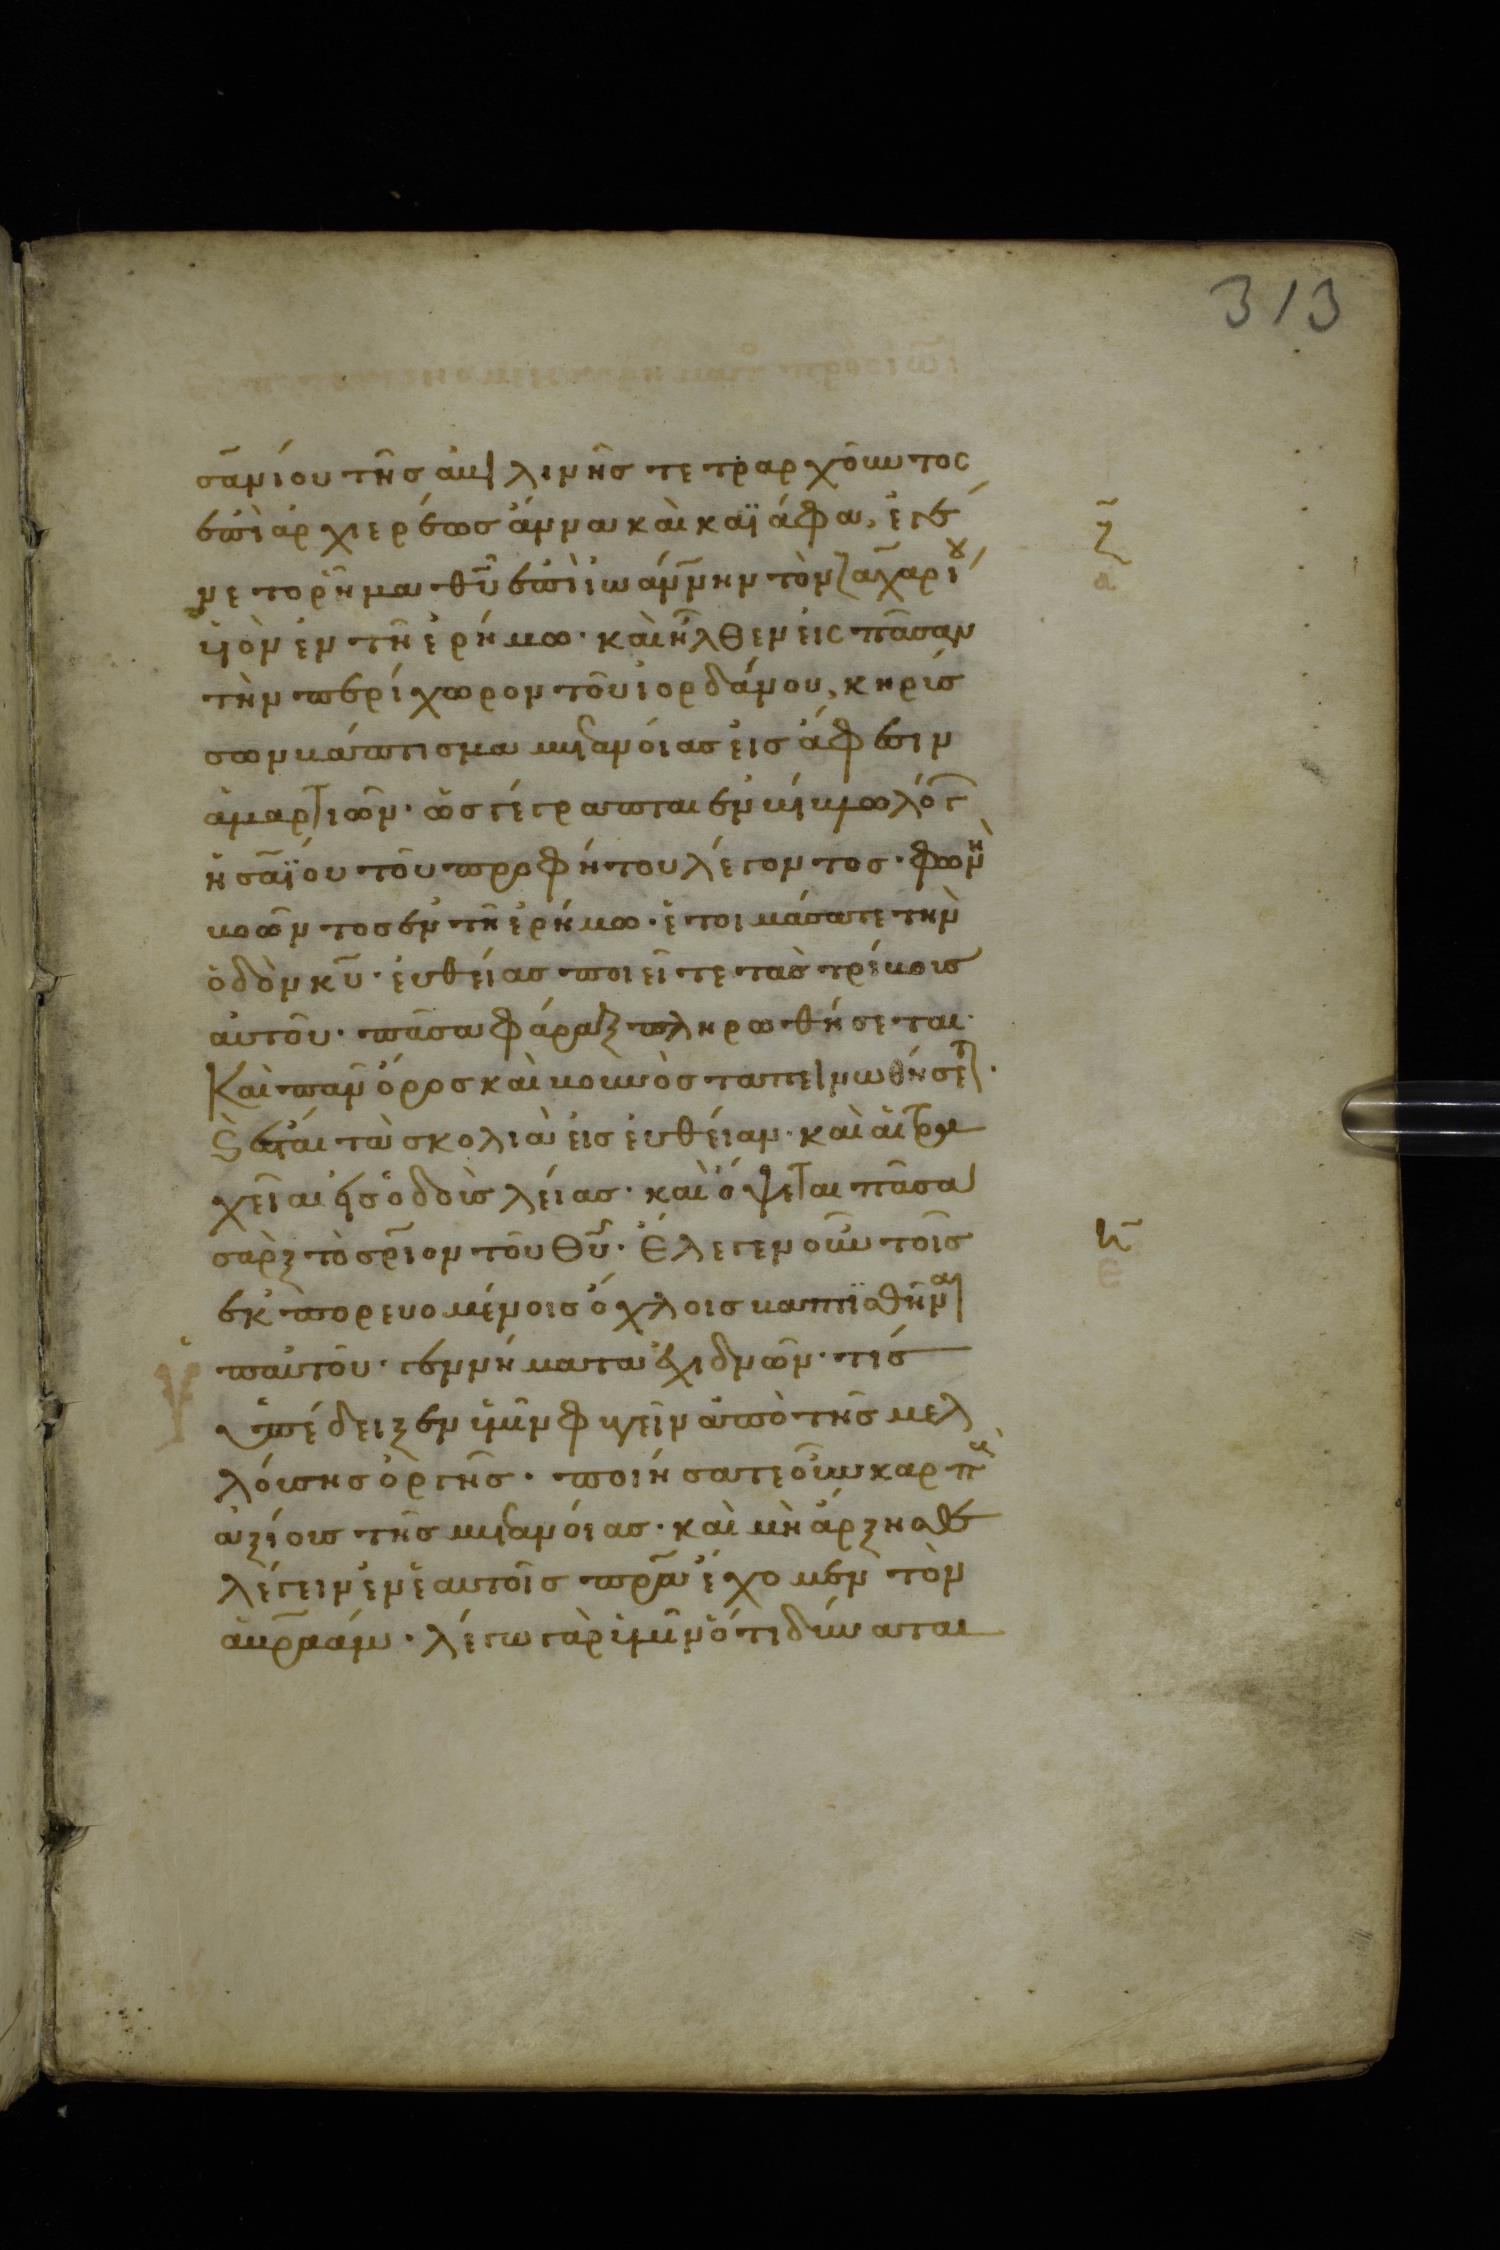 313
σανίου τῆς ἀβιλινῆς τετραρχοῦντος
ἐπὶ ἀρχιερέως ἄννα καὶ καϊάφα, ἐγέ
νετο ρῆμα θῦ ἐπὶ ἰωάννην τὸν ζαχαρίου
ὑιὸν ἐν τῆ ἐρήμω· καὶ ἦλθεν εἰς πᾶσαν
τὴν περίχωρον τοῦ ἰορδάνου, κηρύσ
σων βάπτισμα μετανοίας εἰς ἄφεσιν
ἁμαρτιῶν· ὡς γέγραπται ἐν βίβλω λόγ
ἠσαΐου τοῦ προφήτου λέγοντος· φωνὴ
βοῶντος ἐν τῆ ἐρήμω· ἑτοιμάσατε τὴν
ὁδὸν κῦ· ἐυθείας ποιεῖτε τὰς τρίβους
αὐτοῦ· πᾶσα φάραγξ πληρωθήσεται·
Καὶ πᾶν ὄρος καὶ βουνὸς ταπεινωθήσετ·
Ἔσται τὰ σκολιὰ εἰς ἐυθείαν· καὶ αἱ τρα
χεῖαι εἰς ὁδοὺς λείας· καὶ ὄψεται πᾶσα
σὰρξ τὸ σρίον τοῦ Θῦ· Ἔλεγεν οὖν τοῖς
ἐκπορευομένοις ὄχλοις βαπτισθῆναι
ὑπ αὐτοῦ· γεννήματα ἐχιδνῶν· τίς
ὑπέδειξεν ὑμῖν φυγεῖν ἀπὸ τῆς μελ
λούσης ὀργῆς· ποιήσατε οὖν καρποὺς
ἀξίους τῆς μετανοίας· καὶ μὴ ἄρξησθε
λέγειν ἐν ἑαυτοῖς πρα ἔχομεν τὸν
ἀβραάμ· λέγω γὰρ ὑμῖν ὅτι δύναται
ζ
α
η
ε